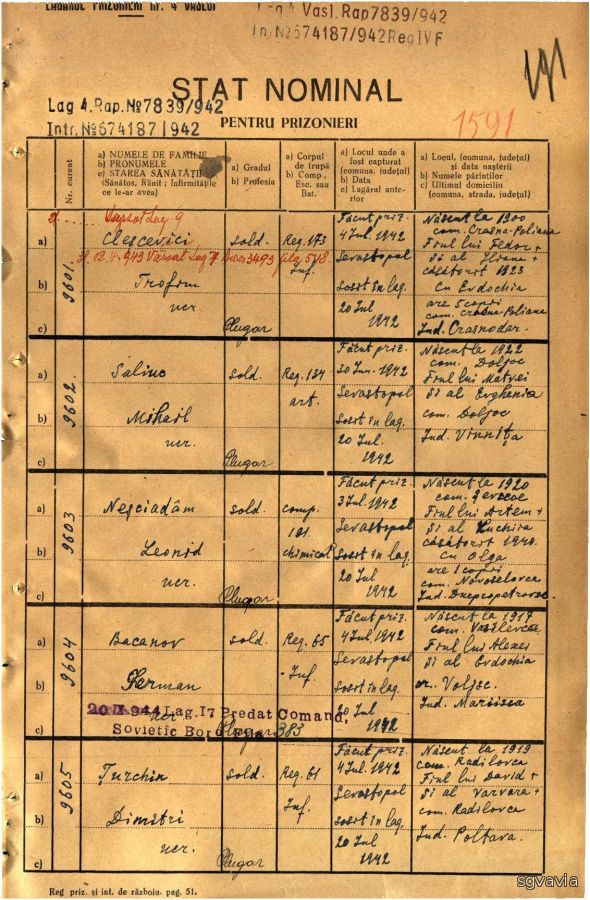 LAGĂRUL PRIZONIERI Nr. 4 VASLUI
Lag 4 Vasl. Rap 7839/942
In. № 674187/942 Reg IV F
191
STAT NOMINAL
Lag 4. Rap. № 7839/942
Intr. № 674187/942
PENTRU PRIZONIERI
1591
Nr. curent
a) NUMELE DE FAMILIE
b) PRONUMELE
c) STAREA SĂNĂTĂȚII
(Sănătos, Rănit; Infirmitățile
ce le-ar avea)
a) Gradul
b) Profesia
a) Corpul
de trupă
b) Comp.,
Esc. sau
Bat.
a) Locul unde a
fost capturat
(comuna, județul)
b) Data
c) Lagărul ante-
rior
a) Locul, (comuna, județul)
și data nașterii
b) Numele părinților
c) Ultimul domiciliu
(comuna, strada, județul)
9601.
a)
b)
c)
Vărsat Lag. 9
Clescevici
943 Vărsat Lag 7
3493 pag 518
Trofim
ucr.
sold.
Plugar
Reg. 173
Inf.
Făcut priz.
4 Jul. 1942
Sevastopol
Sosit în lag.
20 Jul
1942
Născut la 1900
com. Crasna-Poliana
Fiul lui Fedor +
și al Iliana +
căsătorit 1923
cu Evdochia
are 5 copii
com. Crasna-Poliana
Jud. Crasnodar.
9602.
a)
b)
c)
Saliuc
Mihail
ucr.
sold.
Plugar
Reg. 134
art.
Făcut priz.
30 Jun. 1942
Sevastopol
Sosit în lag.
20 Jul.
1942
Născut la 1922
com. Doljoc
Fiul lui Matvei
și al Evghenia
com. Doljoc
Jud. Vinnița
9603
a)
b)
c)
Neșciadâm
Leonid
ucr.
sold.
Plugar
comp.
191
chimical
Făcut priz.
3 Jul. 1942
Sevastopol
Sosit în lag.
20 Jul
1942
Născut la 1920
Fiul lui Artem +
și al Luchira
căsătorit 1940.
cu Olga
are 1 copii
com. Novoselovca
Jud. Dnepropetrovsc
9604
a)
b)
c)
Bacanov
Gherman
ucr
sold.
Plugar
Reg. 65
Inf.
Făcut priz.
4 Jul. 1942
Sevastopol
Sosit în lag.
20 Jul
1942
Născut la 1917
com. Vasilevca
Fiul lui Alexei
și al Evdochia
or. Voljsc.
20 IX 944 Lag. 17 Predat Comand,
Sovietic
383
9605
a)
b)
c)
Țurchin
Dimitri
ucr.
sold.
Plugar
Reg. 61
Inf.
Făcut priz.
4 Jul. 1942
Sevastopol
sosit în lag.
20 Jul
1942
Născut la 1919
com. Radilovca
Fiul lui David +
și al Varvara +
com. Radilovca
Jud. Poltava.
Reg priz. și int. de războiu. pag. 51.
sgvavia